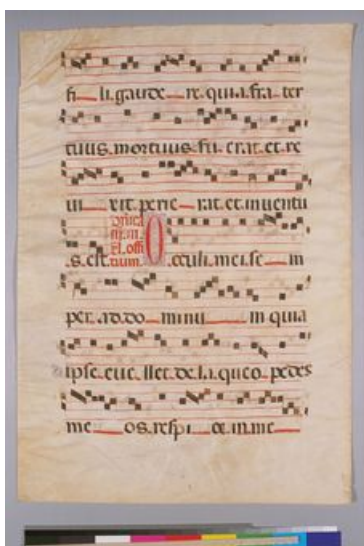 fi li.gaude re.quia.fra ter
tuus.mortuus.fu erat.et.re
ui xit.perie rat.et.inuentu
s.est. Oculi.mei.se m
per.ad.do minu m quia
ipse.eue llet.de.la queo.pedes
me os.respi ce.in.me